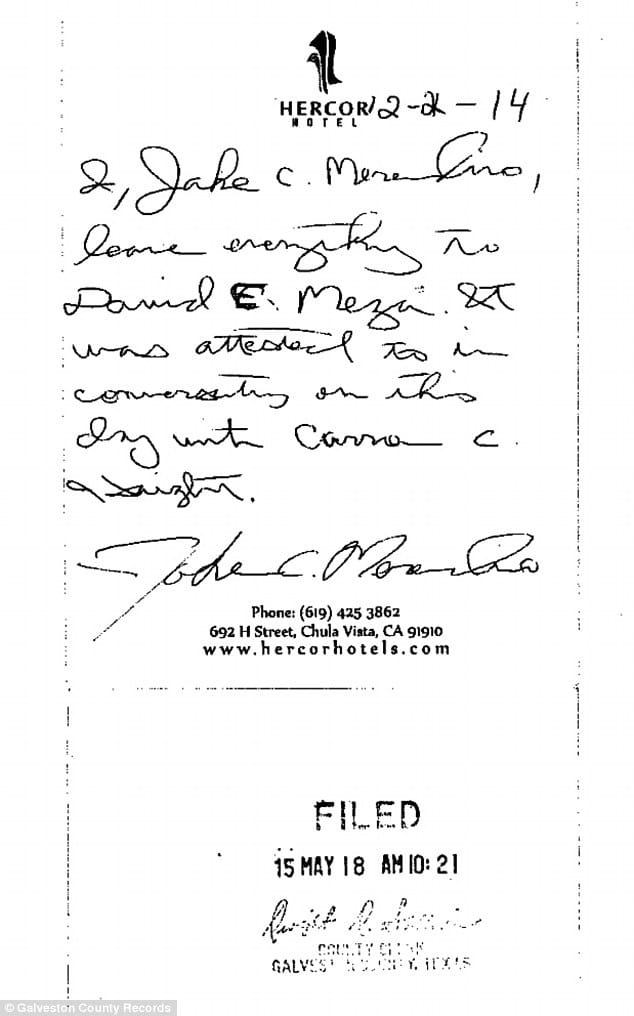 HERCOR
HOTEL
12-21-14
I, Jake C. Merendino,
leave everything to
David E. Meza. It
was attested to in
conversation on this
day with
C.
Jake C. Merendino
Phone: (619) 425 3862
692 H Street, Chula Vista, CA 91910
www.hercorhotels.com
FILED
15 MAY 18 AM 10:21
COUNTY CLERK
GALVESTON COUNTY, TEXAS
© Galveston County Records